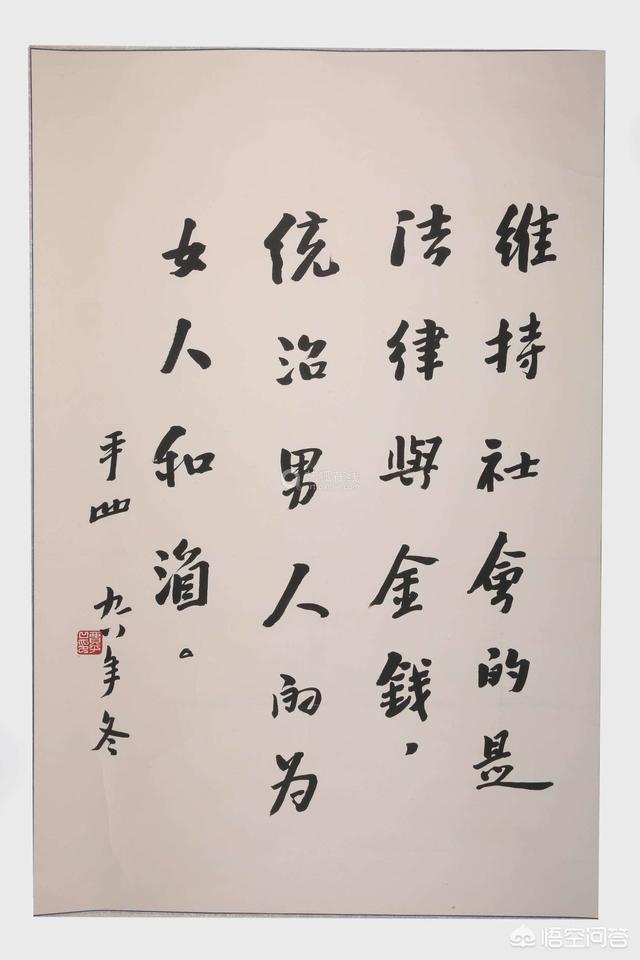 維持社會的是
法律與金錢，
統治男人的为
女人和酒。
平凹 九八年冬
悟空问答